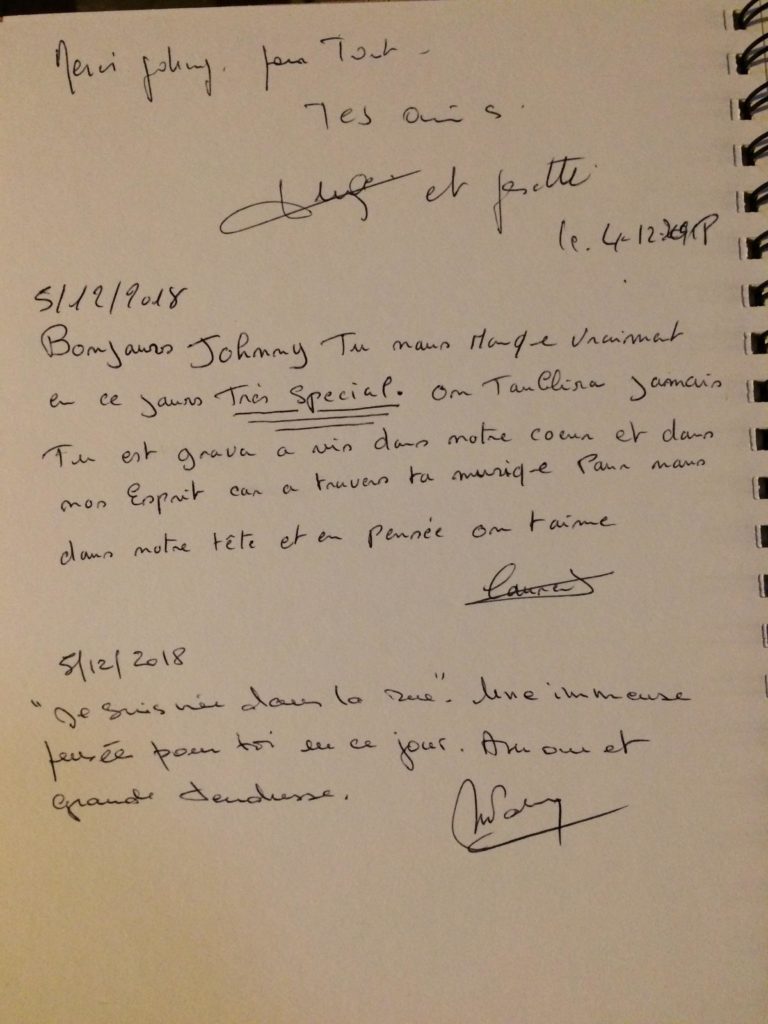 Merci Johny. pour Tout -
Tes amis.
et Josette
le. 4-12-
5/12/2018
Bonjours Johnny Tu nous Manque vraimat
en ce jours Très Special. on T'oublira Jamais
Tu est grava a vis dans notre coeur et dans
nos Esprit car a travers ta musiqe Pour nous
dans notre tête et en Pensée on t'aime
Laurent
5/12/2018
"Je suis née dans la rue". Une immense
pensée pour toi en ce jour. Amour et
grande tendresse.